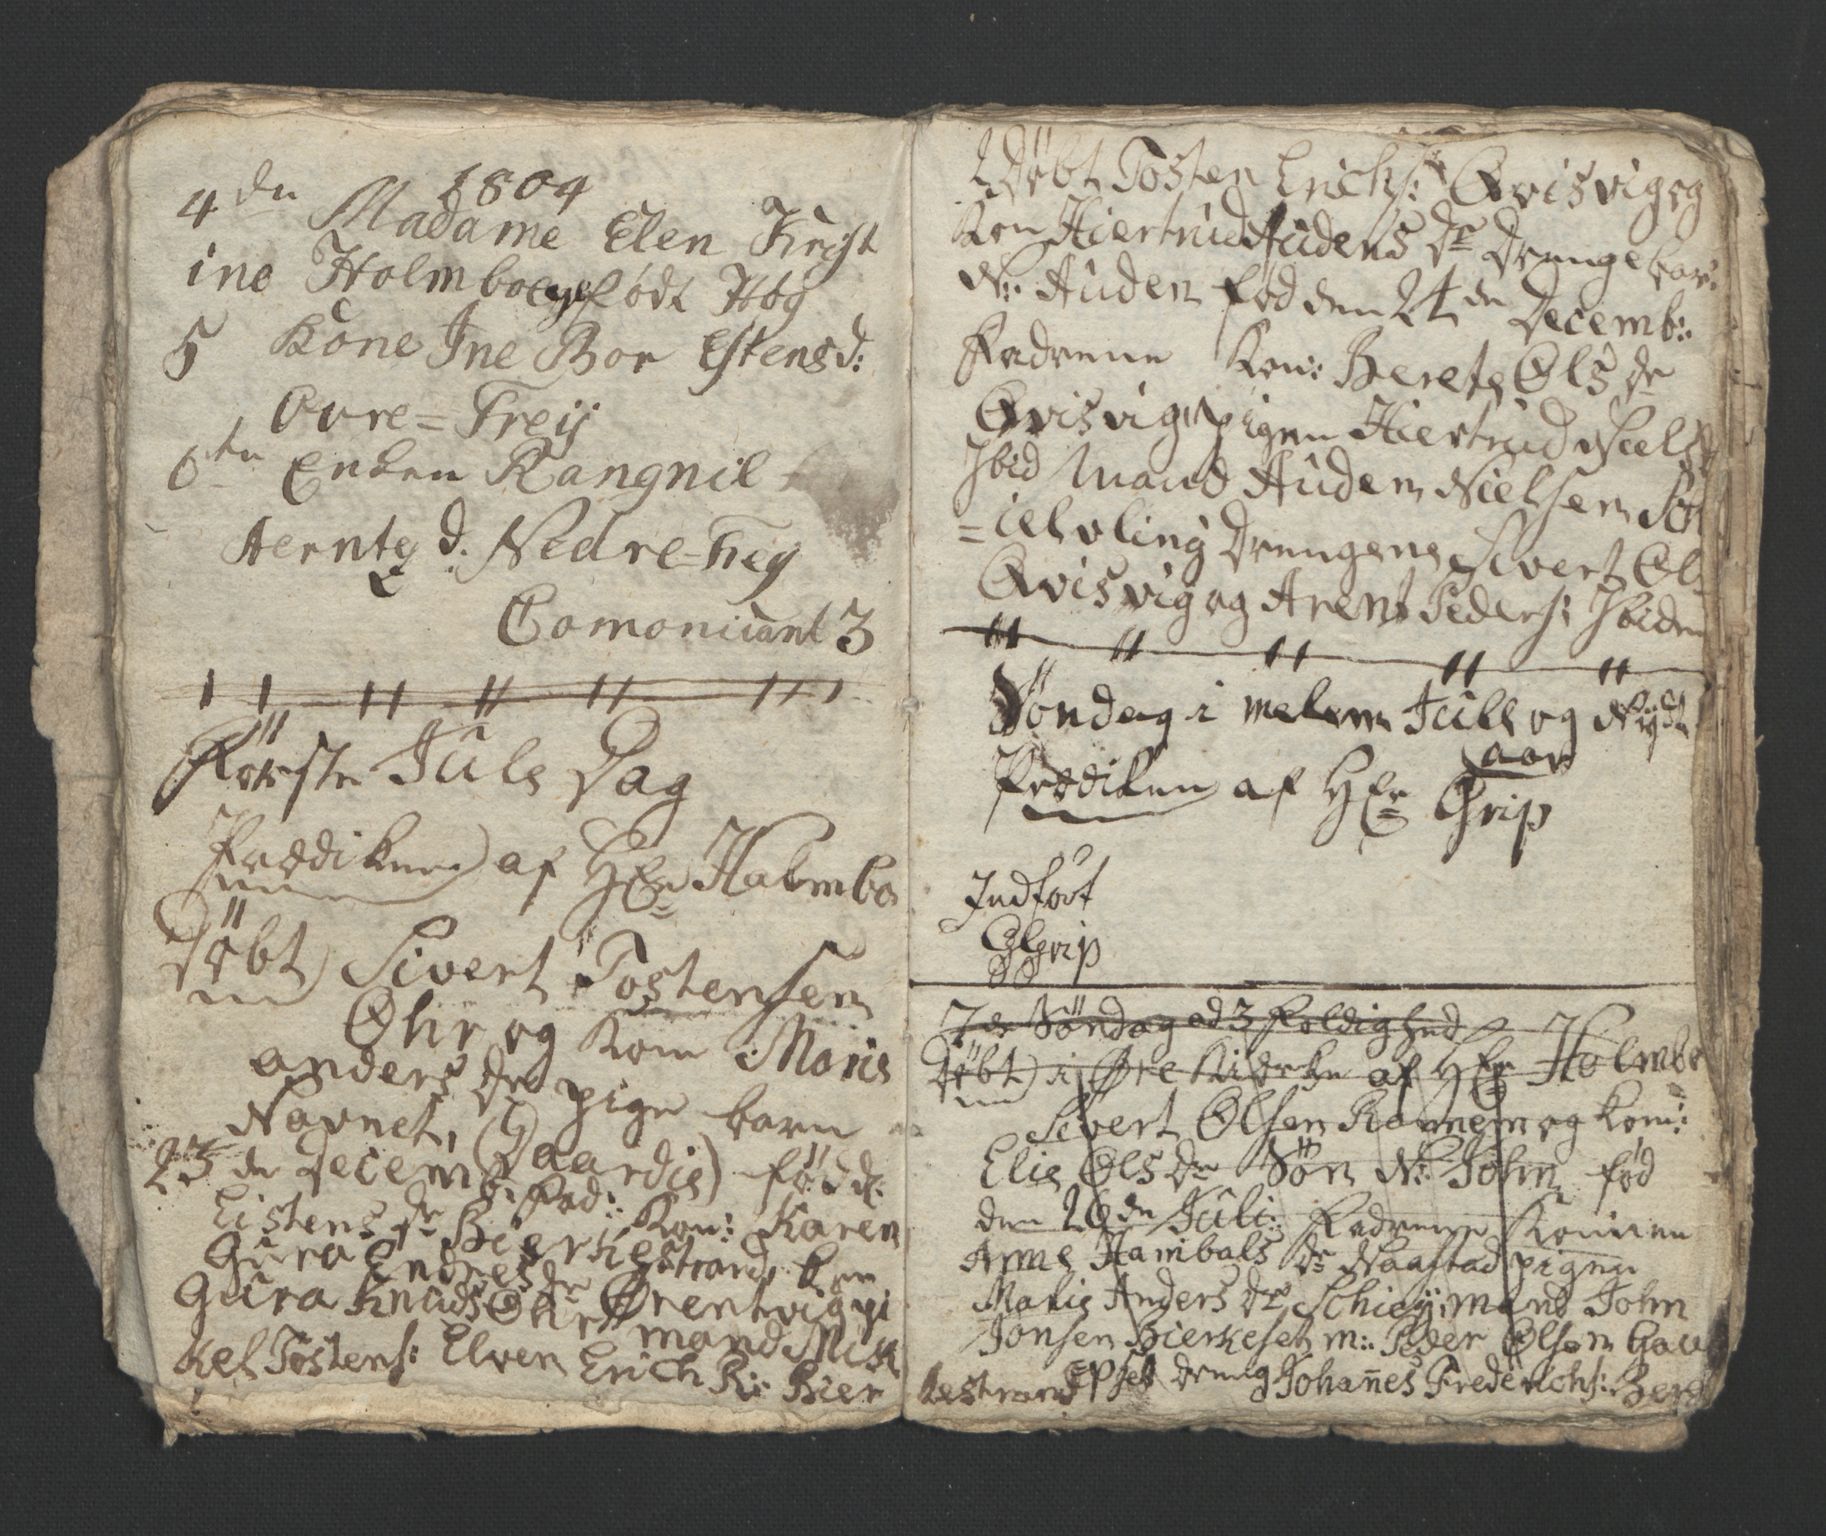 1804
4 dn Madame Elen Kirst
ine Holmboe født Høg
5 Kone Ine Bor Estensd:
Ovre=Freij
6 tn Enken Rangnil
Aerntsd. Nedre=Frey
Comoniiant 3
Første Jule Dag
Prædiken af HEr Halmbo
Døbt Sivert Tostensen
Øhr og Kone Maris
anders Dr pige barn
Navnet, (Gaardis) fød d:
23 de Decemb: Fad: Kon: Karen
Eistens dr Bierkestrand, kon
Gura Endres dr Ørentvig pi
Gura Knuds Øhr mand Mik
kel Tostens: Elven Erich R: Bier
Døbt Tosten Erichs: Qvisvig og
Kon Hiertrud Audens Dr Drengebar:
N: Auden fød den 24 de Decemb:
Fadrene Kon: Berete Ols dr
Qvisvig, pigen Hiertrud Niels
Ibid Mand Auden Nielsen
Drengene Sivert Ols
Qvisvig og Arent Peders: Ibiden
Søndag i melem Jule og Nÿt
aar
Prædiken af HEr Grip
Indført
Grip
7 de Søndag ad 3 Foldighed
Døbt i Øre Kiercke af HEr Holmbo
Sivert Olsen Ramem og Kom:
Elie Ols Dr Søn N: John fød
den 26 de Juli: Fadrene Konnen
Anne Hanibals Dr Naastad pigen
Maris Anders Dr Schieÿ, mand John
Jonsen Bierkeset m: Peder Olsen Gau
kestrand Epset dreng Johan̄es Frederichs: Berg